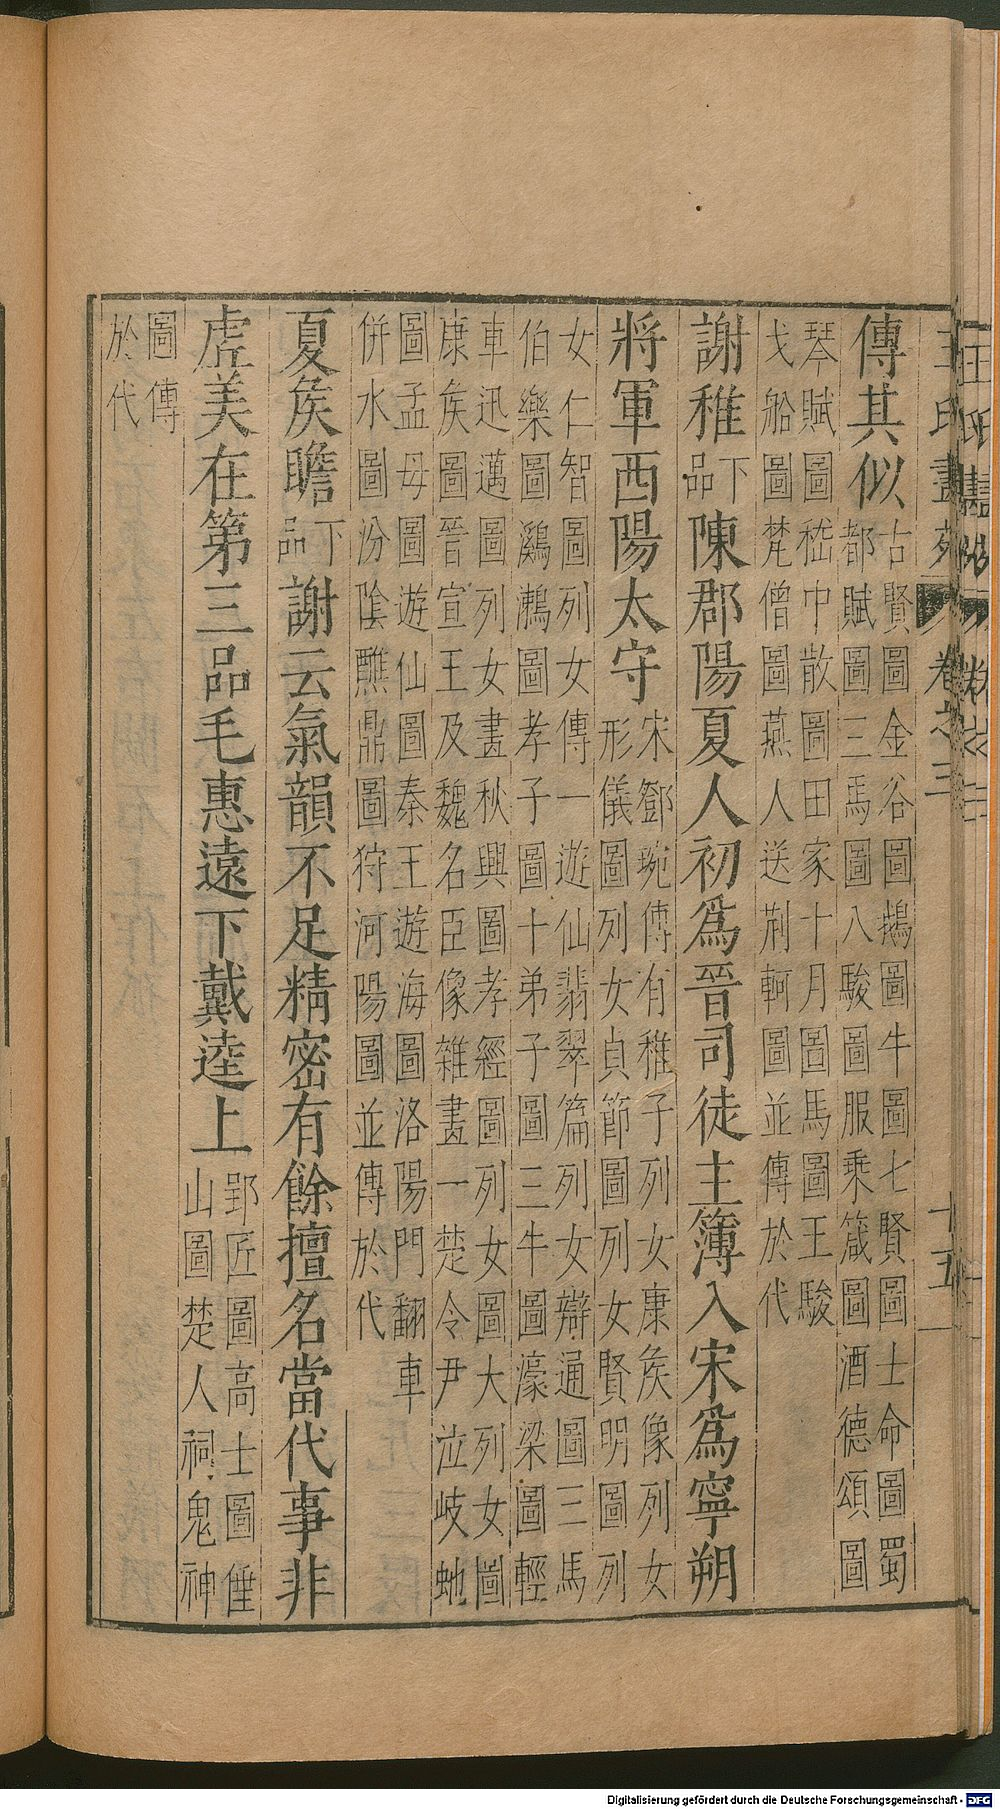 王氏畫苑 卷之三 十五
傳其似
古賢圖金谷圖鵝圖牛圖七賢圖士命圖蜀
都賦圖三馬圖八駿圖服乘箴圖酒德頌圖
琴賦圖嵇中散圖田家十月圖馬圖王駿
戈船圖梵僧圖燕人送荊軻圖並傳於代
謝稚下品陳郡陽夏人初爲晉司徒主簿入宋爲寧朔
將軍西陽太守
宋鄧琬傳有稚子列女康矦像列女
形儀圖列女貞節圖列女賢明圖列
女仁智圖列女傳一遊仙翡翠篇列女辯通圖三馬
伯樂圖鸂鶒圖孝子圖十弟子圖三牛圖濠梁圖輕
車迅邁圖列女畫秋興圖孝經圖列女圖大列女圖
康矦圖晉宣王及魏名臣像雜畫一楚令尹泣岐虵
圖孟母圖遊仙圖秦王遊海圖洛陽門翻車
併水圖汾陰醮鼎圖狩河陽圖並傳於代
夏矦瞻下品謝云氣韻不足精密有餘擅名當代事非
虛美在第三品毛惠遠下戴逵上
郢匠圖高士圖倕
山圖楚人祠鬼神
圖傳
於代
Digitalisierung gefördert durch die Deutsche Forschungsgemeinschaft - DFG